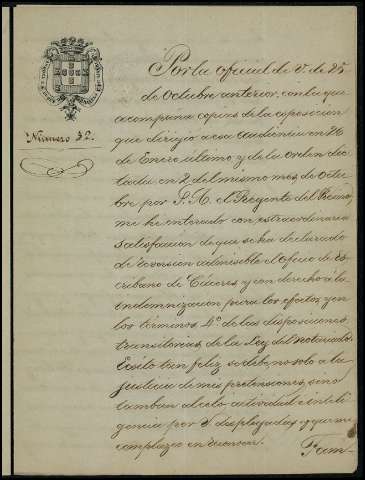 Número 32.
Por la oficial de V. de 25
de Octubre anterior, con la que
acompaña copias de la exposicion
que dirigió a esa Audiencia en 26
de Enero último y de la orden dic
tada en 2 del mismo mes de Octu
bre por S. A. el Regente del Reino,
me he enterado con extraordinaria
satisfaccion de que se ha declarado
de reversion admisible el oficio de Es
cribano de Cáceres y con derecho á la
indemnizacion para los efectos y en
los términos 4º de las disposiciones
transitorias de la Ley del notariado.
Exito tan feliz se debe, no solo a la
justicia de mis pretensiones, sino
tambien al celo, actividad e inteli
gencia por V. desplegadas y que me
complazco en reconocer.
Tam-